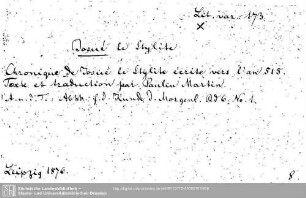 Lit. var. 173.
x
Josué le Stylite
Chronique de Josué le Stylite écrite vers l'an 515.
Texte et traduction par Paulin Martin
A. u. d. T.: Abhh. f. d. Kunde d. Morgenl. Bd 6, No. 1.
Leipzig 1876.
8.
Sächsische Landesbibliothek -
Staats- und Universitätsbibliothek Dresden